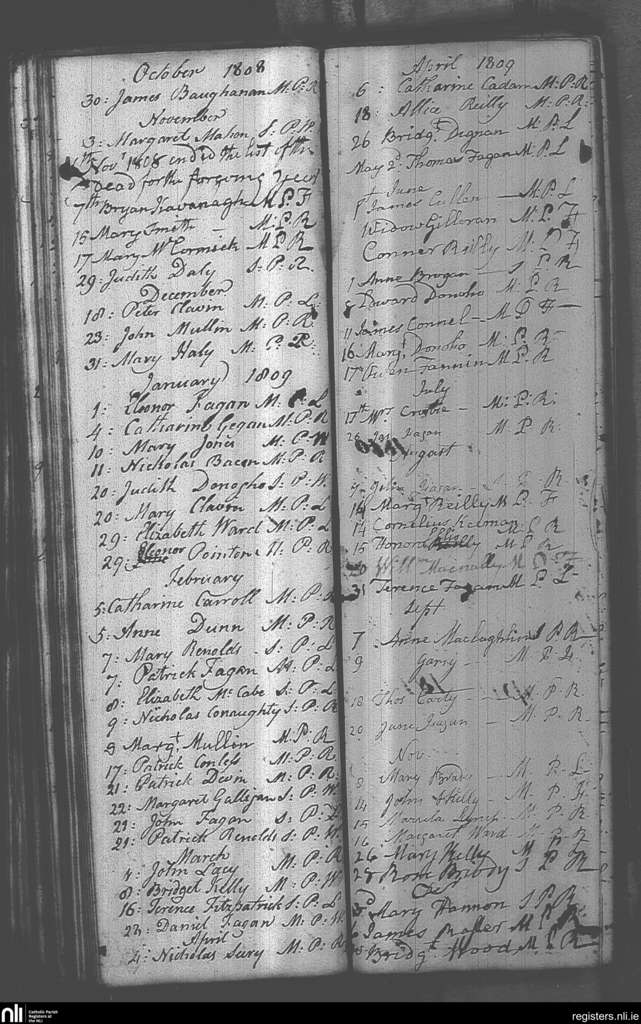 October 1808
30: James Baughanan M: P: R
November
3: Margaret Mahon S: P: W.
Novr 1808 ended the list of the
Dead for the forgoing year
7th Bryan Kavanagh M P F
15 Mary Smith M: P: R
17 Mary McCormick M P R
29: Judith Daly S: P: R.
December
18: Peter Clavin M. P: L
23: John Mullin M: P: R
31: Mary Haly M: P: R
January 1809
1: Eleonor Fagan M: P: L
4: Catharine Gegan M: P: R
10: Mary Jones M: P: W
11: Nicholas Bacon M: P: R
20: Judith Donogho S: P: W.
20: Mary Clavin M: P: L
29: Elizabeth Ward M: P: L
29: Eleonor Pointon M: P: R
February
5: Catharine Carroll M: P: R
5: Anne Dunn M: P: R
7: Mary Renolds S: P: L
7: Patrick Fagan M: P: L
8: Elizabeth McCabe S: P: L
9: Nicholas Conaughty S: P: R
9 Margt. Mullin M: P: R
17: Patrick Conless M: P: R
21: Patrick Devin M: P: R
22: Margaret Galligan S: P: W
21: John Fagan S: P: L
21: Patrick Renolds S: P: W.
March
4: John Lacy M: P: R
8: Bridget Kelly M: P: W
16: Terence Fitzpatrick S: P: L
23: Daniel Fagan M: P: W
April
4: Nicholas Seery M: P: R
April 1809
6: Catharine Cadam M: P: R
18: Allice Reilly M: P: R:
26 Bridgt. Degnan M: P: L
May 2d: Thomas Fagan M: P: L
June
James Cullen M: P: L
Widow Gilloran M: P: F
Conner Reilly M: P F
1 Anne Brogan S: P: R
8 Edward Donoho M: P: R
11 James Connel M P F
16 Margt. Donoho M. P. R
17th Owen Fannin M P R
July
17th Mrs M: P: R:
26 Fagan M P R
August
R
14 Margt Reilly M P F
14 Cornelius R
15 Honora Reilly M P R
31 Terence Fagan M P L
Sept
7 Anne Maclaghlin S P R
9 Garry M P L
18 Thos Carty M P R
20 Jane M. P. R.
Nov
8 Mary M. P. L
14 John M P F
15 Lynch M P R
16 Margaret Ward M P R
26 Mary Kelly M
28 Rose Briody S P R
Dec
3d Mary Hannon S P R
James Master M P
Bridgt. Wood M P R
nli
Catholic Parish
Registers at
the NLI
registers.nli.ie